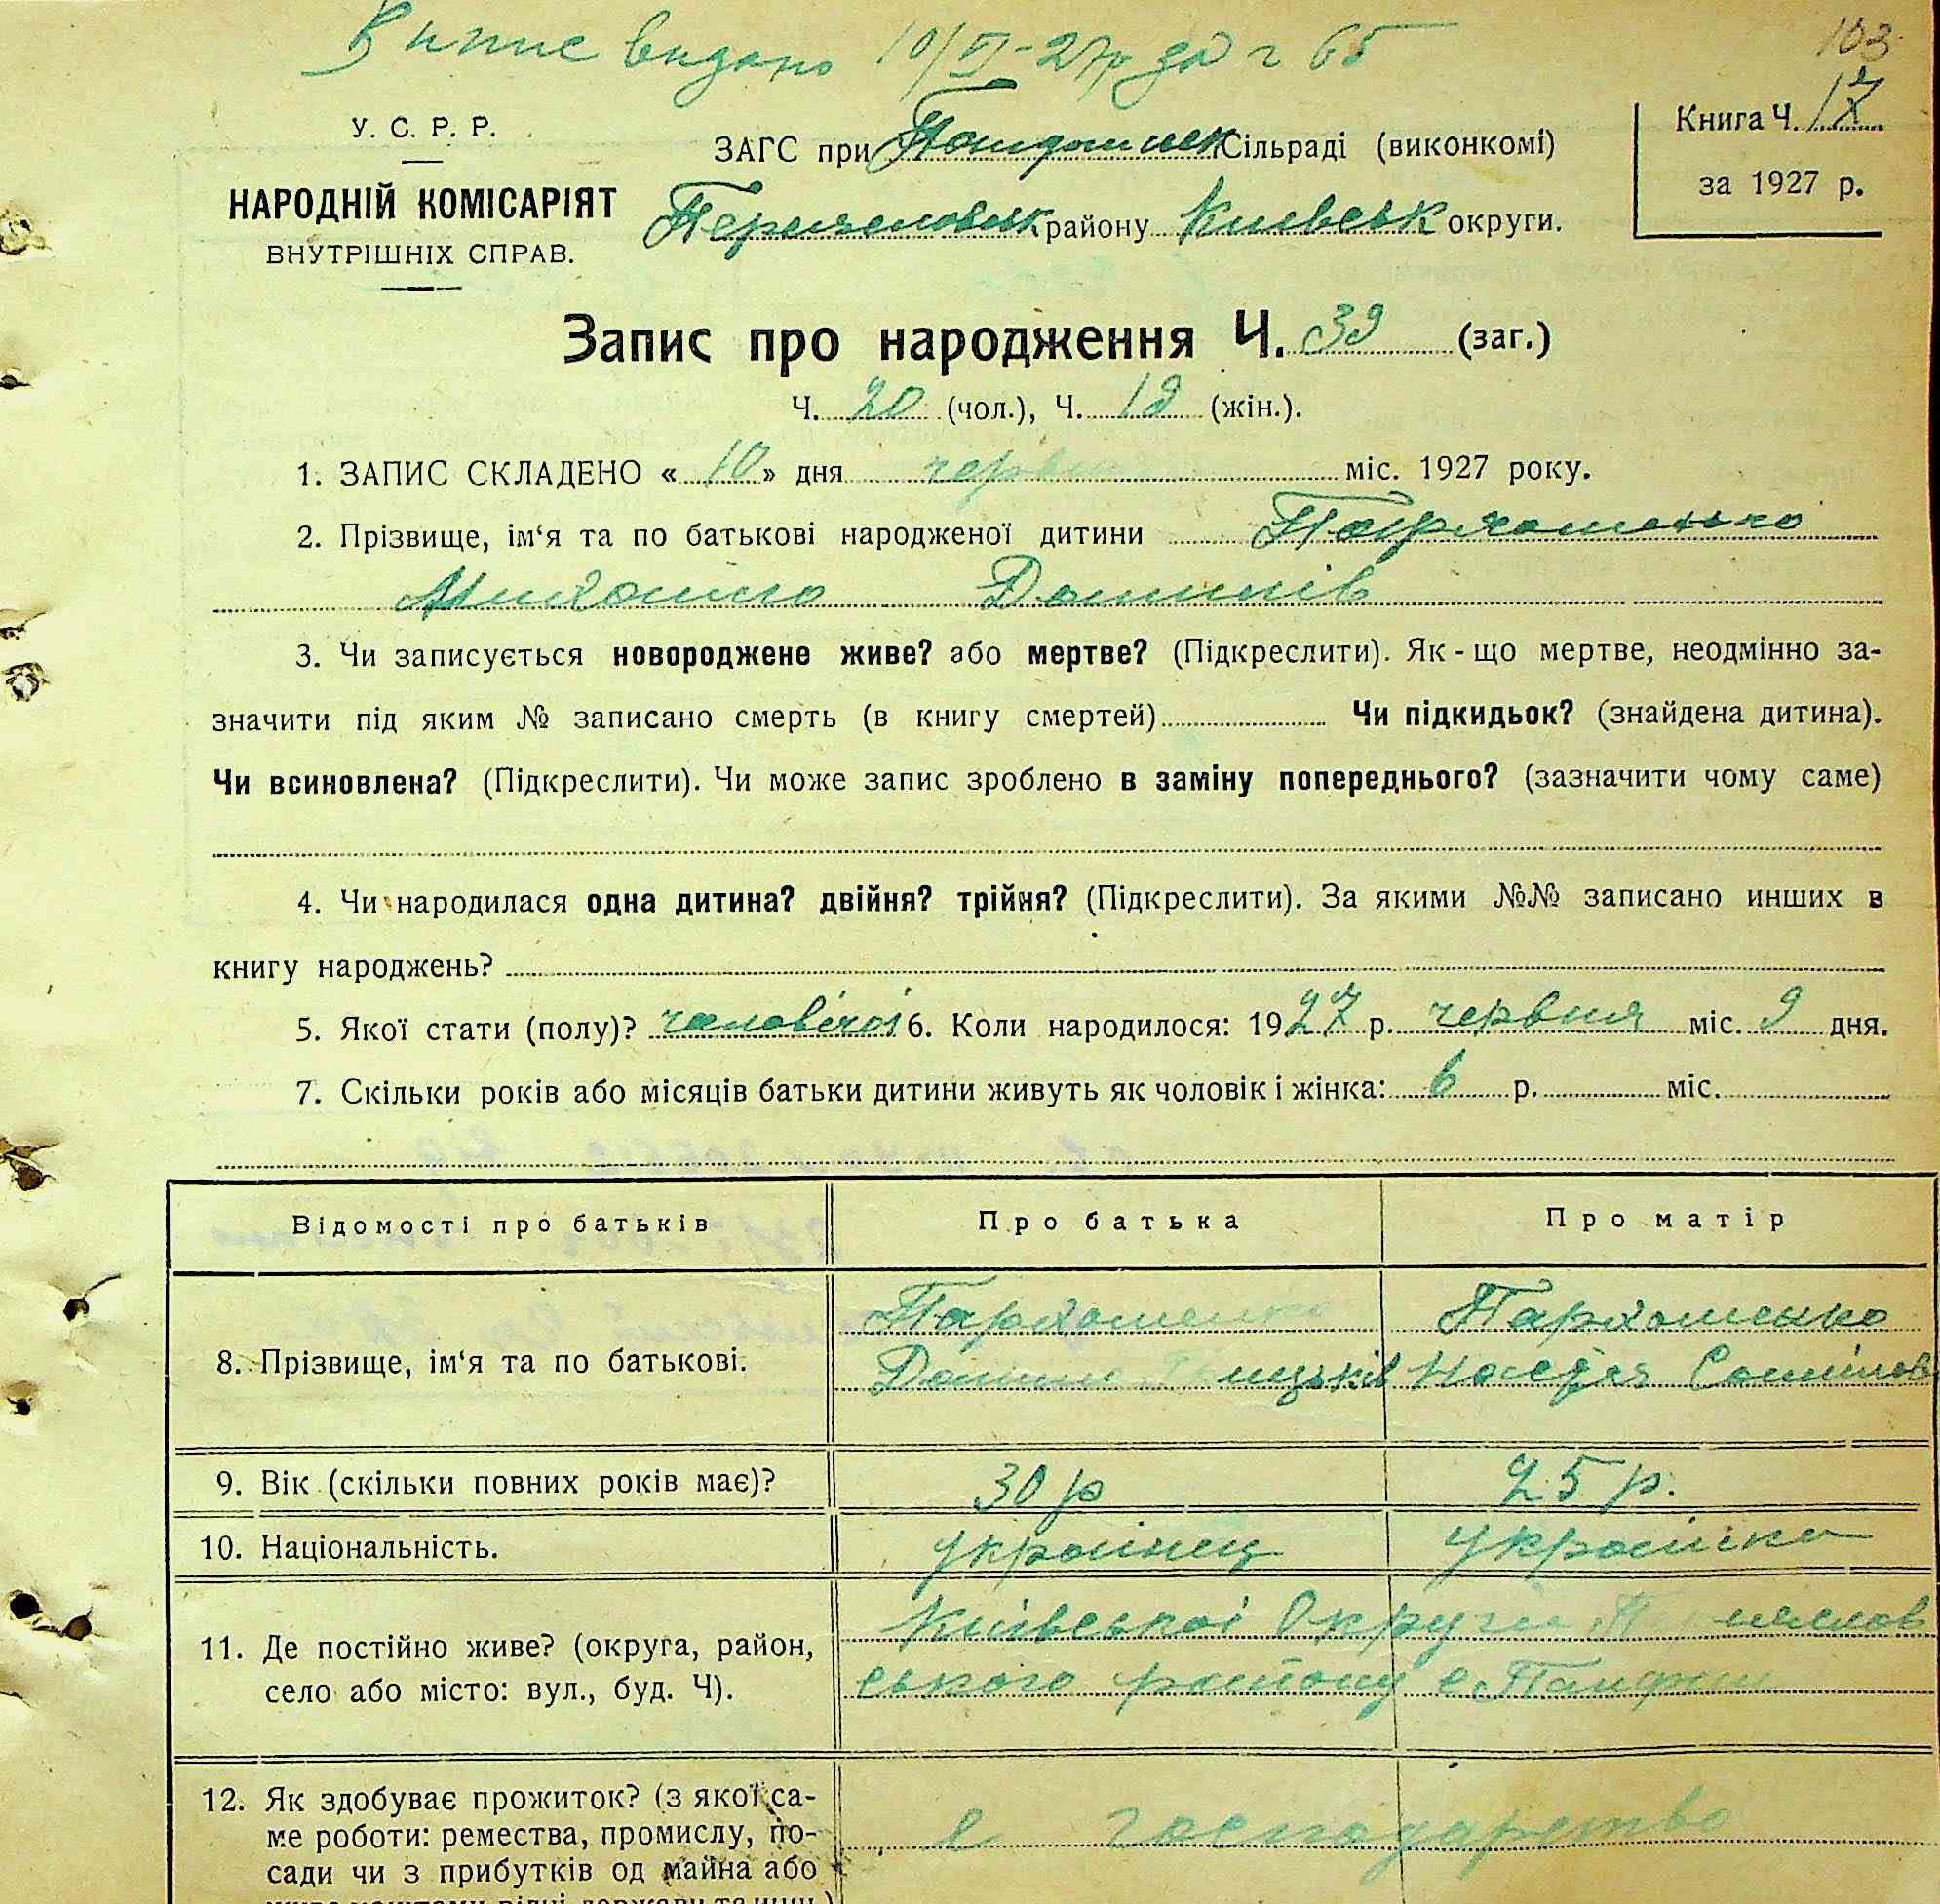 Випис видано 10/VI-27р за ч 65
103
У. С. Р. Р.
НАРОДНІЙ КОМІСАРІЯТ
ВНУТРІШНІХ СПРАВ.
ЗАГС при Сільраді (виконкомі)
району Київськ округи.
Книга Ч. 17
за 1927 р.
Запис про народження Ч. 39 (заг.)
Ч. 20 (чол.), Ч. 19 (жін.).
1. ЗАПИС СКЛАДЕНО « 10 » дня червня міс. 1927 року.
2. Прізвище, ім‘я та по батькові народженої дитини Пархоменко
Михайло Данилів
3. Чи записується новороджене живе? або мертве? (Підкреслити). Як - що мертве, неодмінно за-
значити під яким № записано смерть (в книгу смертей) Чи підкидьок? (знайдена дитина).
Чи всиновлена? (Підкреслити). Чи може запис зроблено в заміну попереднього? (зазначити чому саме)
4. Чи народилася одна дитина? двійня? трійня? (Підкреслити). За якими №№ записано инших в
книгу народжень?
5. Якої стати (полу)? чоловічої 6. Коли народилося: 1927 р. червня міс. 9 дня.
7. Скільки років або місяців батьки дитини живуть як чоловік і жінка: 6 р. міс.
Відомості про батьків Про батька Про матір
8. Прізвище, ім‘я та по батькові.
Пархоменко Пархоменко
Данило Настя
9. Вік (скільки повних років має)? 30 р 25 р.
10. Національність. українец українка
11. Де постійно живе? (округа, район,
село або місто: вул., буд. Ч).
Київської Округи
ського району с.
12. Як здобуває прожиток? (з якої са-
ме роботи: ремества, промислу, по-
сади чи з прибутків од майна або
с господарство